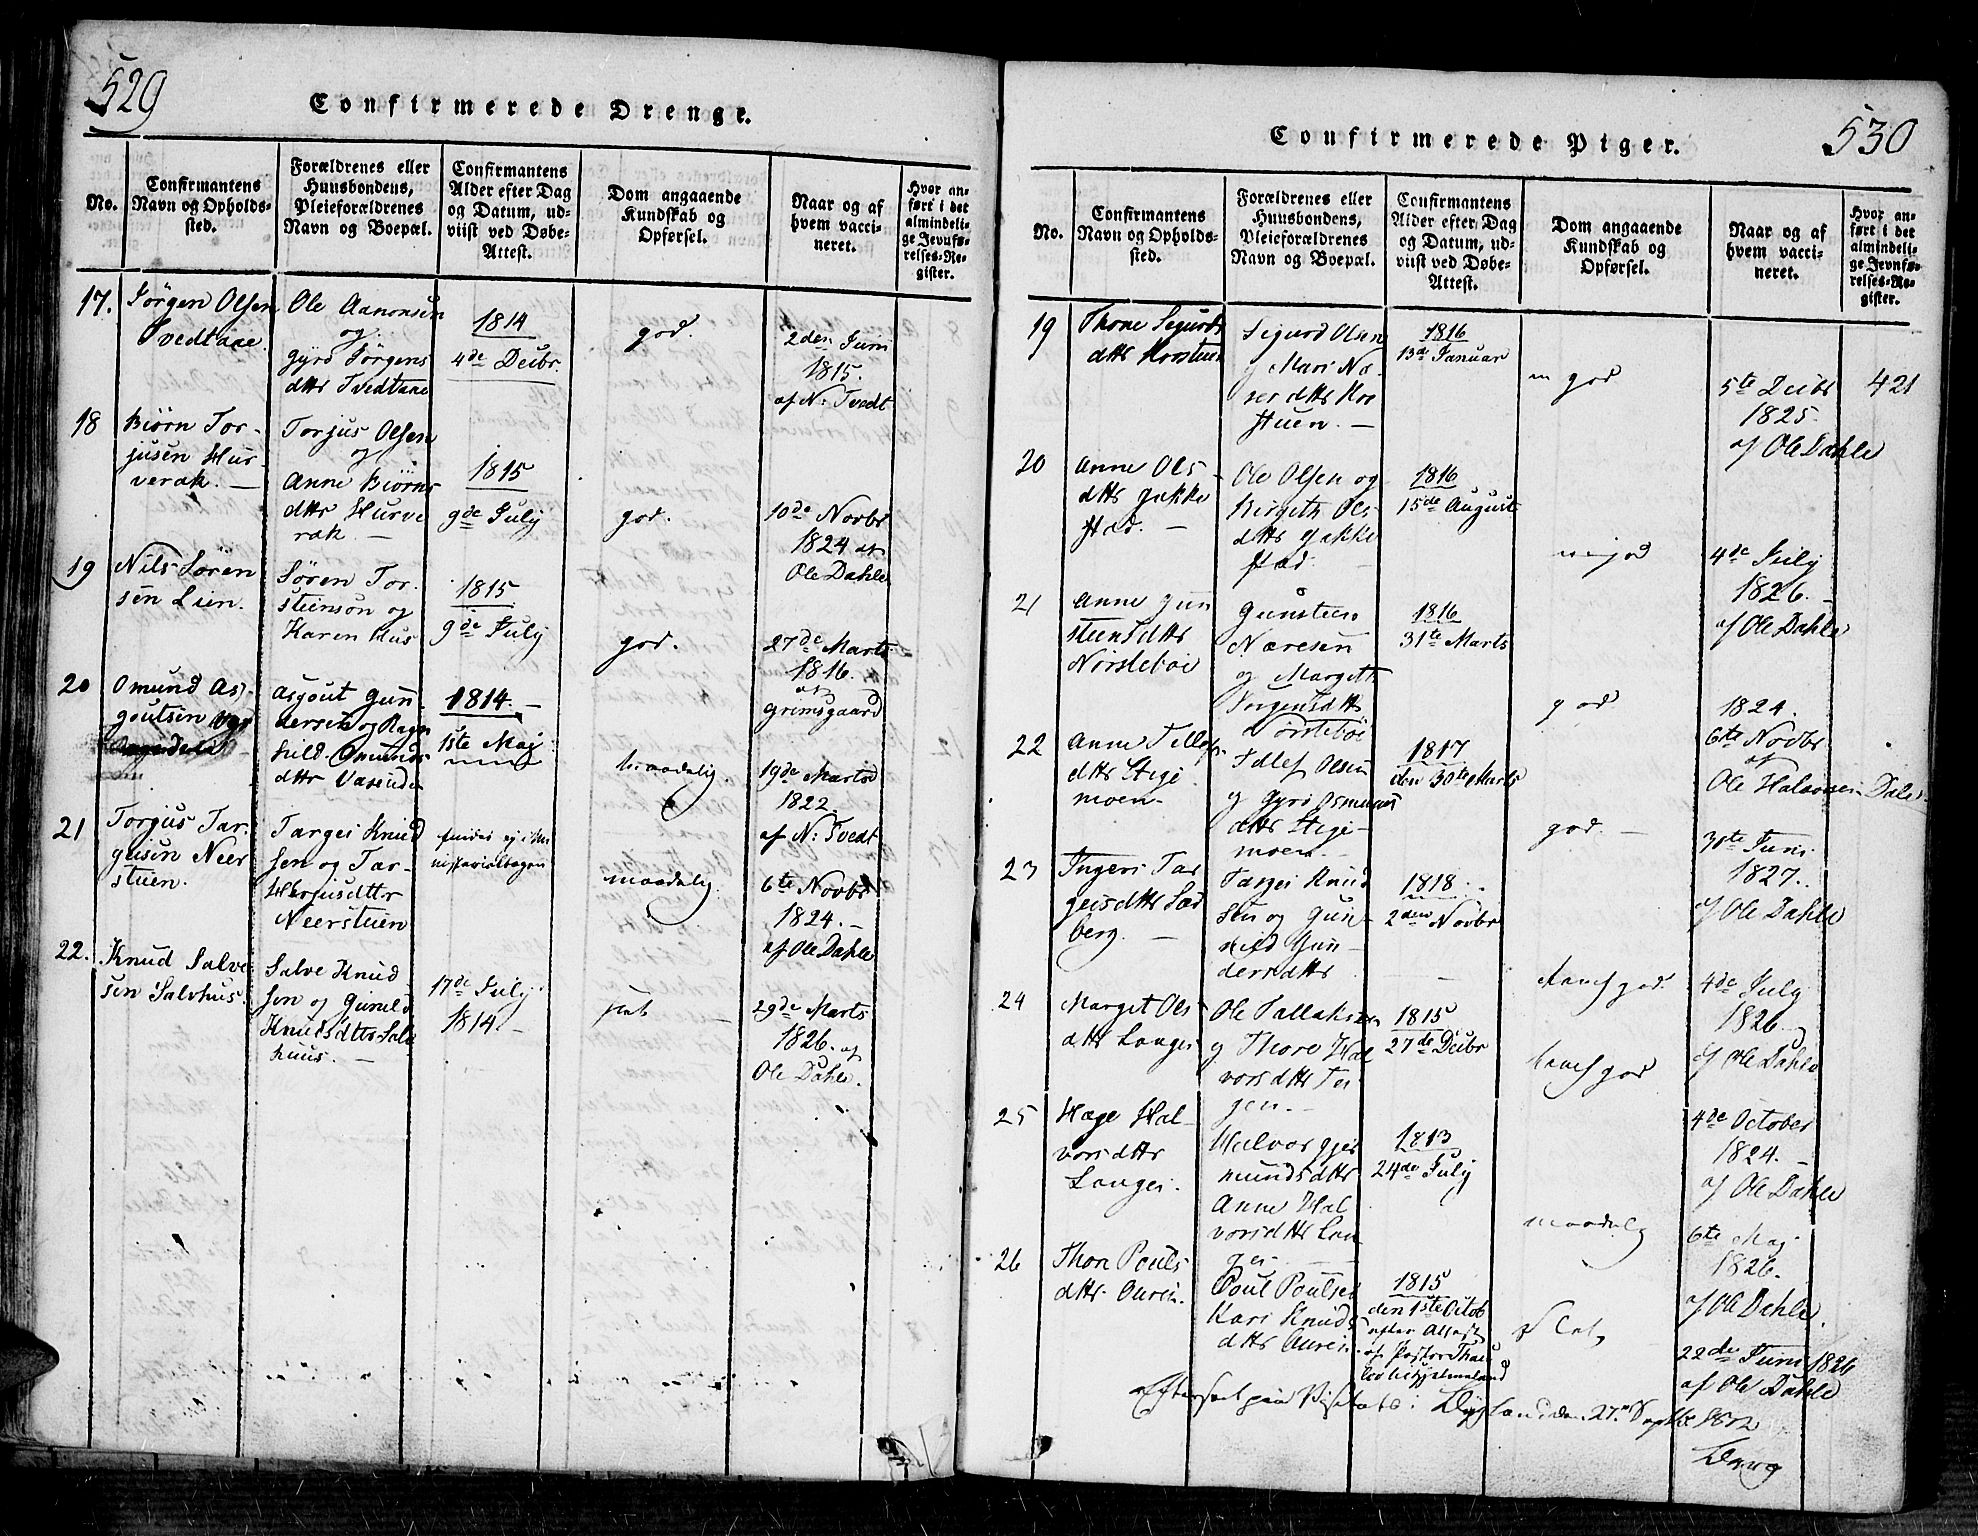 529
Confirmerede Drenge.
No.
Confirmantens
Navn og Opholds-
sted.
Forældrenes eller
Huusbondens,
Pleieforældrenes
Navn og Boepæl.
Confirmantens
Alder efter Dag
og Datum, ud-
viist ved Døbe-
Attest.
Dom angaaende
Kundskab og
Opførsel.
Naar og af
hvem vacci-
neret.
Hvor an-
ført i det
almindeli-
ge Jevnfø-
relses-Re-
gister.
17.
Jörgen Olsen
Tvedtane.
Ole Aanonsen
og
Gyro Jörgens
dttr Tvedtane
1814
4de Decbr.
god.
2den Juni
1815.
af N: Tvedt
18
Biörn Tor-
jusen Hur-
verak. —
Torjus Olsen
og
Anne Biörns
dttr Hurve
rak. —
1815
9de July
god.
10de Novbr
1824 af
Ole Dahle
19
Nils Sören
sen Lien.
Sören Tor-
steinsön og
Karen Hus
1815
9de July
god.
27de Marts
1816.
af
Grimsgaard
20
Omund As-
goutsen
Asgout Gun
dersen og Ragn
hild Omunds
dttr Vasenden
1814. —
1ste Maj
maadelig.
19de Marts
1822.
af N: Tvedt
21
Torjus Tar-
geisen Neer
stuen.
Targei Knud
sen og Tar-
Herjusdttr
Neerstuen
findes ej i Mi
nisterialbogen
maadelig.
6te Novbr
1824. —
af Ole Dahle
22.
Knud Salve
sen Salvhus.
Salve Knud
sen og Gunild
Knudsdttr Salv
huus. —
17de July
1814. —
slet
29de Marts
1826. af
Ole Dahle.
530
Confirmerede Piger.
No.
Confirmantens
Navn og Opholds-
sted.
Forældrenes eller
Huusbondens,
Pleieforældrenes
Navn og Boepæl.
Confirmantens
Alder efter Dag
og Datum, ud-
viist ved Døbe-
Attest.
Dom angaaende
Kundskab og
Opførsel.
Naar og af
hvem vacci-
neret.
Hvor an-
ført i det
almindeli-
ge Jevnfø-
relses-Re-
gister.
19
Thone Sigurds
dttr
Sigurd Olsen
og Mari
stuen. —
1816
13de Januar
god
5te Decbr
1825.
af Ole Dahle
421
20
Anne Ols
dttr Jukke
stad. —
Ole Olsen og
Birgith Ols
dttr Jukke
stad. —
1816
15de August
god
4de July
1826. —
af Ole Dahle
21
Anne Gun
steensdttr
Nörsteböe
Gunsteen
Næresen
og Margeth
Jörgensdttr
Nörsteböe
1816
31te Marts
god
1824.
6te Novbr
af
Ole Halvorsen Dale.
22
Anne Tellefs
dttr Stigi
moen.
Tellef Olsen
og Gyro Osmunds
dttr Stigi-
moen. —
1817
den 30te Marts
god. —
30te Juni
1827.
af Ole Dahle
23
Ingeri Tar
geisdttr Sæd
berg. —
Targei Knud
sen og Gun-
nild Gun-
dersdttr
1818.
2den Novbr
god.
4de July
1826.
af Ole Dahle
24
Marget Ols
dttr Langei
Ole Tallaksen
og Thore Hal
vorsdttr
1815
27de Decbr
god
4de October
1824. —
af Ole Dahle
25
Hæge Hal-
vorsdttr
Langei.
Halvor Gjer
mundsdttr
Anne Hal
vorsdttr Lan
gei —
1813
24de July
maadelig
6te Maj
1826.
af Ole Dahle.
26
Thore Pouls
dttr. Ouren.
Poul Poulsen
Kari Knuds
dttr Auren.
1815
den 1ste Octob
efter Attest
af Pastor
Slet,
22de Juni 1826
af Ole Dahle
Efterseet paa Visitats i den 27. Septbr